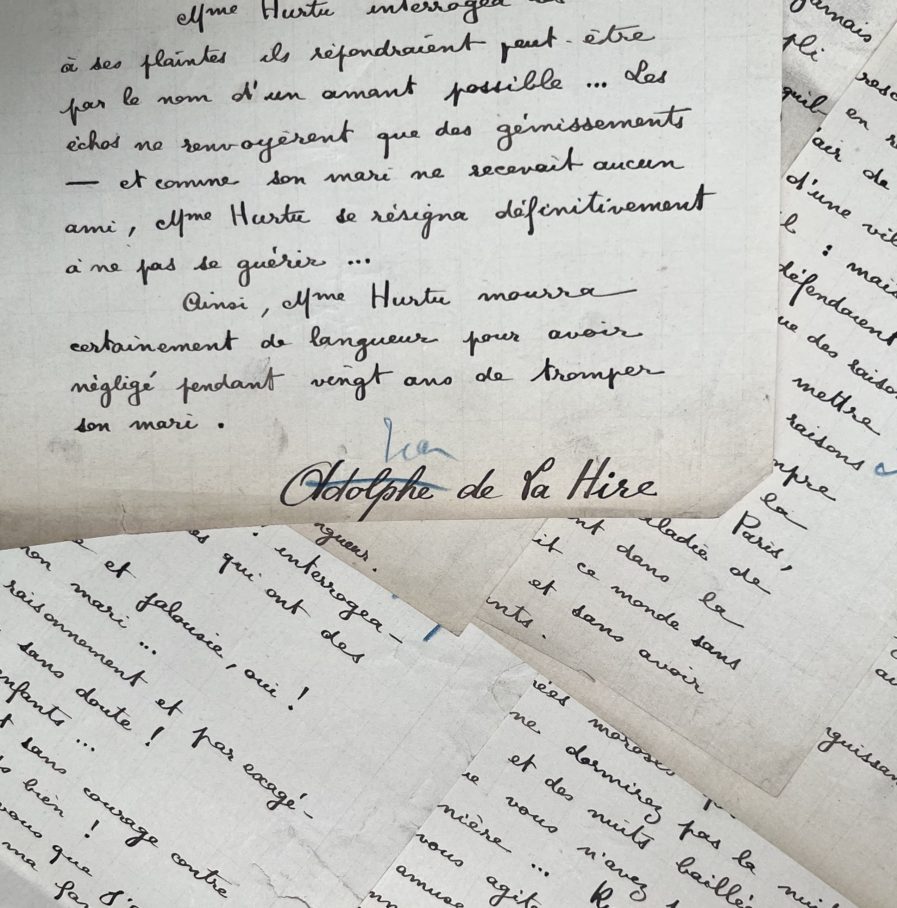 Mme Hurtu interrogea
à ses plaintes ils répondraient peut-être
par le nom d'un amant possible ... Les
échos ne renvoyèrent que des gémissements
— et comme son mari ne recevait aucun
ami, Mme Hurtu se résigna définitivement
à ne pas se guérir ...
Ainsi, Mme Hurtu mourra
certainement de langueur pour avoir
négligé pendant vingt ans de tromper
son mari.
Jean
Adolphe de La Hire
jamais
pli
en
air de
d'une
: mais
défendaient
des
mettre
raisons
la
Paris,
ladie de
nt dans la
it ce monde sans
et sans avoir
nts.
ngueur.
interrogea-
es qui ont des
et jalousie, oui !
mon mari ...
raisonnement et par exagé-
sans doute !
enfants ...
sans courage contre
bien !
vous que
ma
ées moroses
ne dormirez pas la nuit
et des nuits
vous n'avez
nière ...
vous